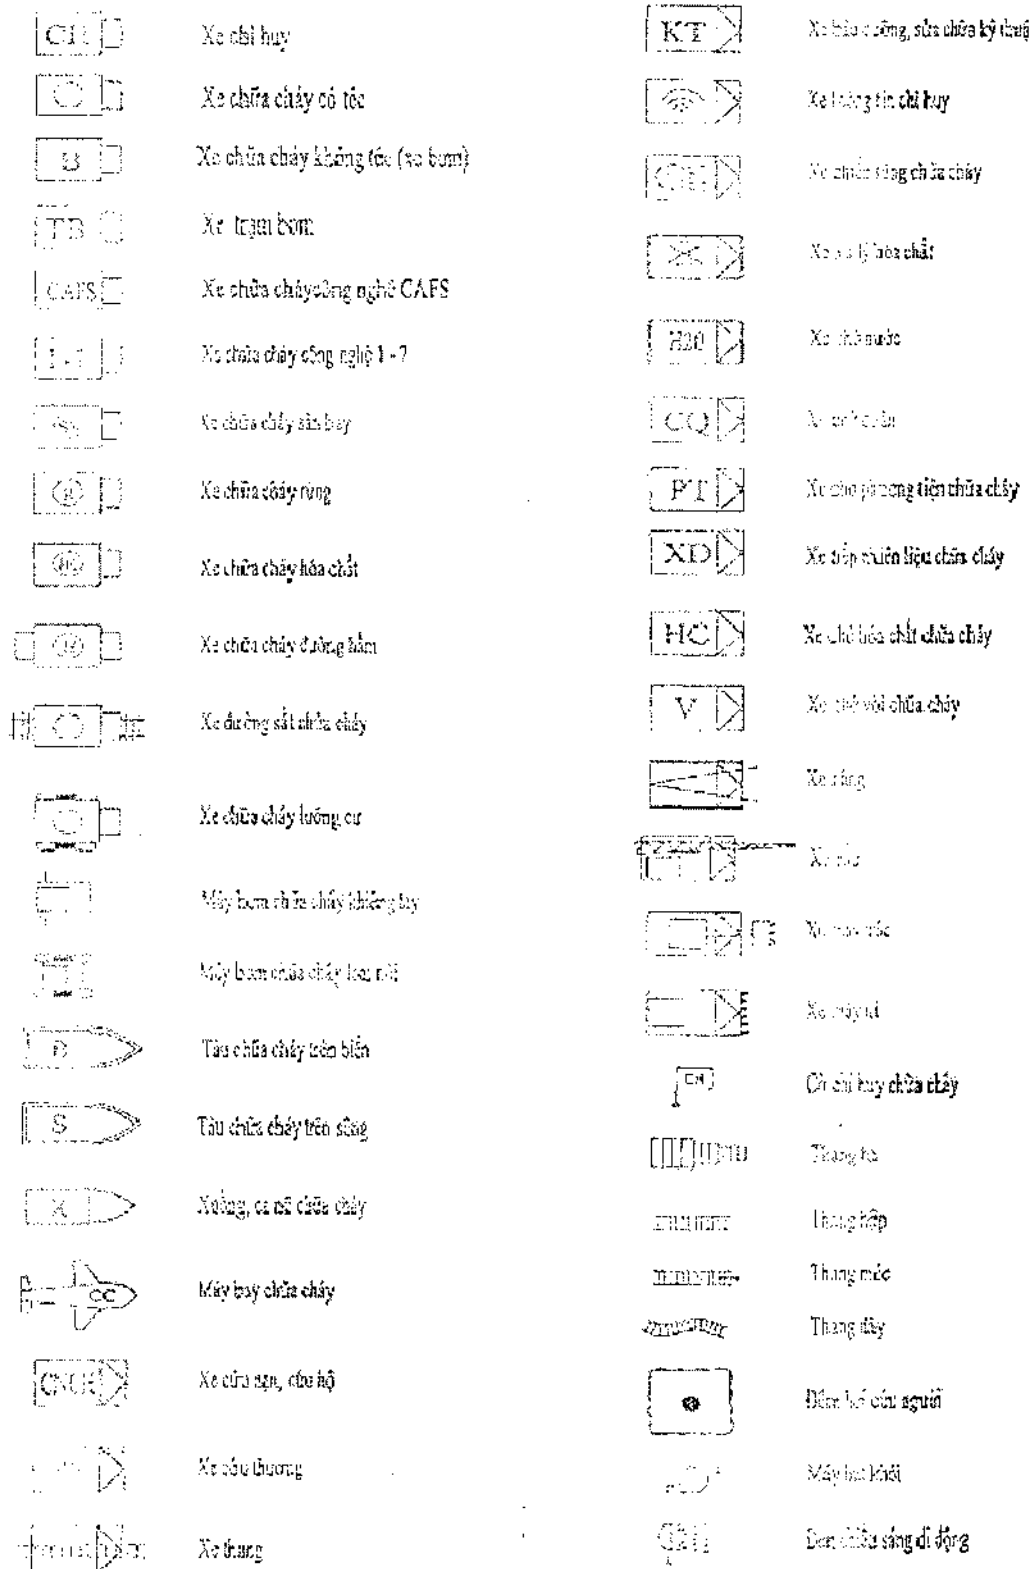 CH Xe chỉ huy
Xe chữa cháy có téc
B Xe chữa cháy không téc (xe bơm)
TB Xe trạm bơm
CAFS Xe chữa cháy công nghệ CAFS
1 - 7 Xe chữa cháy công nghệ 1 - 7
Xe chữa cháy sân bay
Xe chữa cháy rừng
Xe chữa cháy hóa chất
Xe chữa cháy đường hầm
Xe đường sắt chữa cháy
Xe chữa cháy lưỡng cư
Máy bơm chữa cháy khiêng tay
Máy bơm chữa cháy loại nổi
Tàu chữa cháy trên biển
S Tàu chữa cháy trên sông
X Xuồng, ca nô chữa cháy
CC Máy bay chữa cháy
CNCH Xe cứu nạn, cứu hộ
Xe cứu thương
Xe thang
KT Xe bảo dưỡng, sửa chữa kỹ thuật
Xe thông tin chỉ huy
Xe chiếu sáng chữa cháy
Xe xử lý hóa chất
H20 Xe chở nước
CQ Xe chở quân
PT Xe chở phương tiện chữa cháy
XD Xe tiếp nhiên liệu chữa cháy
HC Xe chở hóa chất chữa cháy
V Xe chở vòi chữa cháy
Xe nâng
Xe cẩu
Xe máy xúc
Xe máy ủi
CH Cờ chỉ huy chữa cháy
Thang ba
Thang hộp
Thang móc
Thang dây
Đệm hơi cứu người
Máy hút khói
Đèn chiếu sáng di động